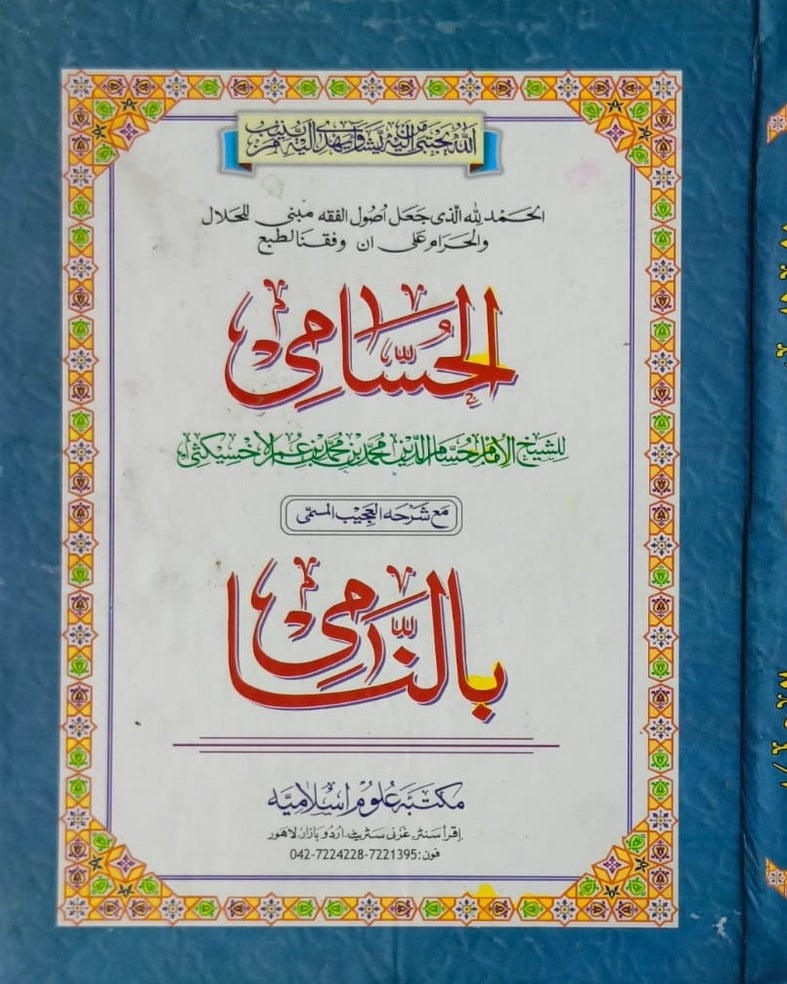 اللّٰہُ يَجْتَبِیْ اِلَیْہِ مَنْ یَّشَآءُ وَیَھْدِیْ اِلَیْہِ مَنْ یُّنِیْبُ
الحَمْد لِله الّذی جَعَل اُصُول الفقه مبنی للحلال
والحَرام علی ان وفقنا لطبع
الحُسَّامِی
للشیخ الامام حُسام الدّین محمّد بن محمّد بن عمر الاخسیکثی
مَع شرحه العجیب المسمّٰی
بالنَّامِی
مکتبَه عُلوم اسلامیّه
اِقرأ سنٹر غزنی سٹریٹ، اُردو بازار لاھور
فون: 7221395-7224228-042